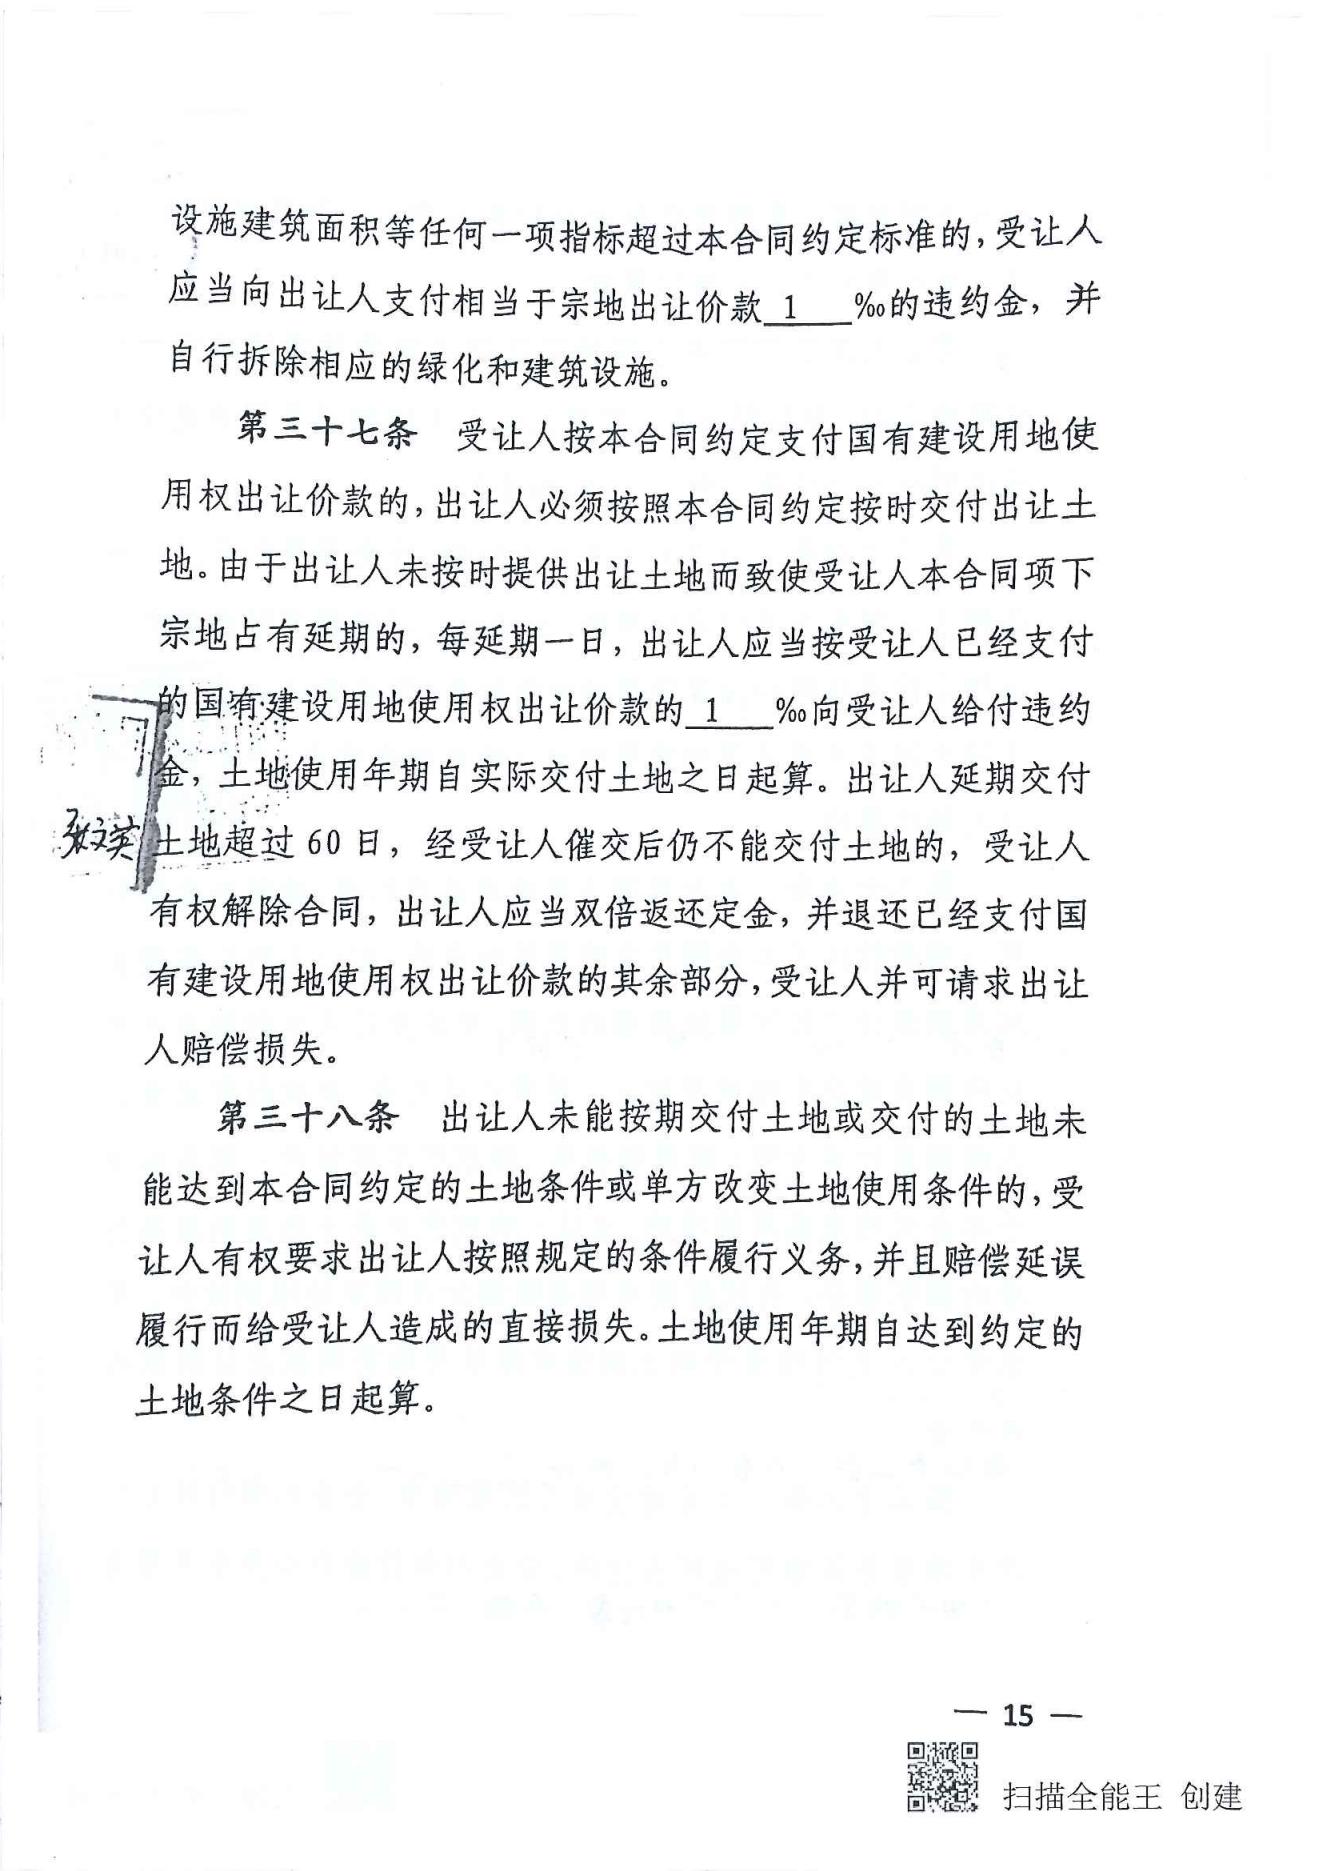 设施建筑面积等任何一项指标超过本合同约定标准的，受让人
应当向出让人支付相当于宗地出让价款 1 ‰的违约金，并
自行拆除相应的绿化和建筑设施。
第三十七条 受让人按本合同约定支付国有建设用地使
用权出让价款的，出让人必须按照本合同约定按时交付出让土
地。由于出让人未按时提供出让土地而致使受让人本合同项下
宗地占有延期的，每延期一日，出让人应当按受让人已经支付
的国有建设用地使用权出让价款的 1 ‰向受让人给付违约
金，土地使用年期自实际交付土地之日起算。出让人延期交付
土地超过 60 日，经受让人催交后仍不能交付土地的，受让人
有权解除合同，出让人应当双倍返还定金，并退还已经支付国
有建设用地使用权出让价款的其余部分，受让人并可请求出让
人赔偿损失。
第三十八条 出让人未能按期交付土地或交付的土地未
能达到本合同约定的土地条件或单方改变土地使用条件的，受
让人有权要求出让人按照规定的条件履行义务，并且赔偿延误
履行而给受让人造成的直接损失。土地使用年期自达到约定的
土地条件之日起算。
— 15 —
扫描全能王 创建